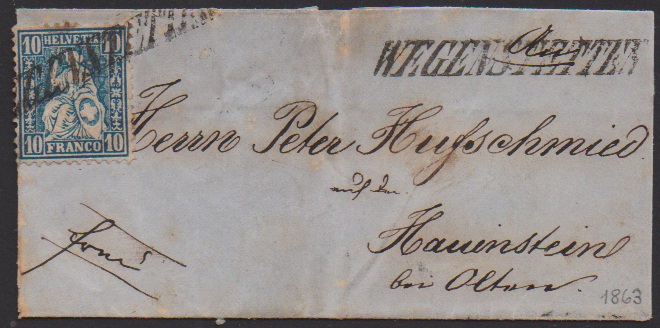 10 HELVETIA 10
10 FRANCO 10
WEGENSTETTEN
An
Herrn Peter Hufschmied
auf dem
Hauenstein
bei Olten.
franco
1863